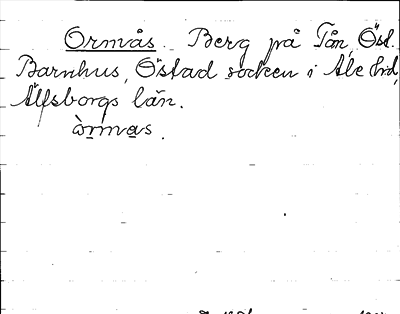 Ormås. Berg på Tån, Öst.
Barnhus, Östad socken i Ale hd,
Älfsborgs län.
òrmas.